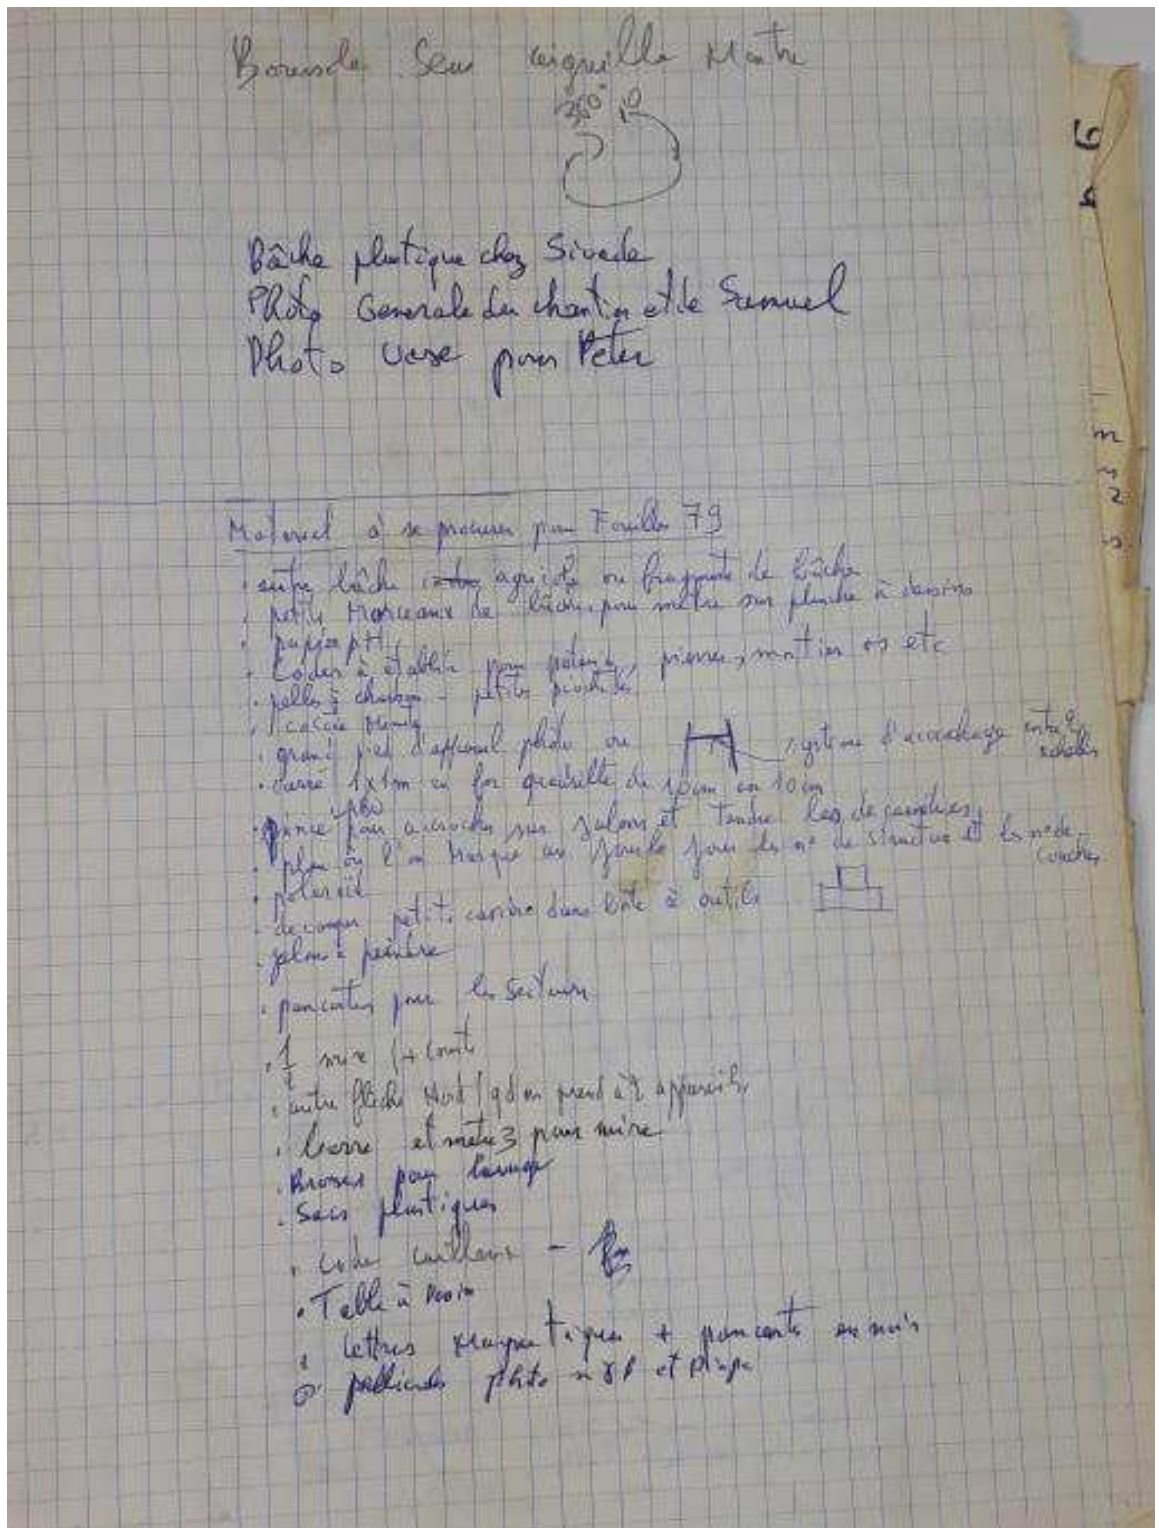 Boussole Sens aiguille Montre
360° 10
Bâche plastique chez Sivade
Photo Generale du chantier et de Samuel
Photo Vase pour Peter
Materiel à se procurer pour Fouilles 79
. autre bâche agricole ou fragments de bâche
. petits morceaux de bâche pour mettre sur planche à dessins
. papier pH
. Codes à établir pour poteries, pierres, mortier os etc
. pelles à charbon - petites
. grand pied d'appareil photo ou système d'accrochage entre 2 échelles
. carré 1x1m en fer quadrillé de 10cm en 10cm
. pince pour accrocher sur jalons et tendre
. plan où l'on marque au jour le jour les n° de structure et les n° de couches
. polaroïd
. découper petit carrière dans boîte à outils
. jalons à peindre
. pancartes pour les secteurs
. 1 mire (+ courte
. autre flèche Nord (qd on prend à 2 appareils
. barre et mètre 3 pour mire
. Brosses pour lavage
. Sacs plastiques
. Code cailloux -
. Table à Dessin
. lettres magnétiques + pancarte en noir
. pellicules photo n & b et Diapo